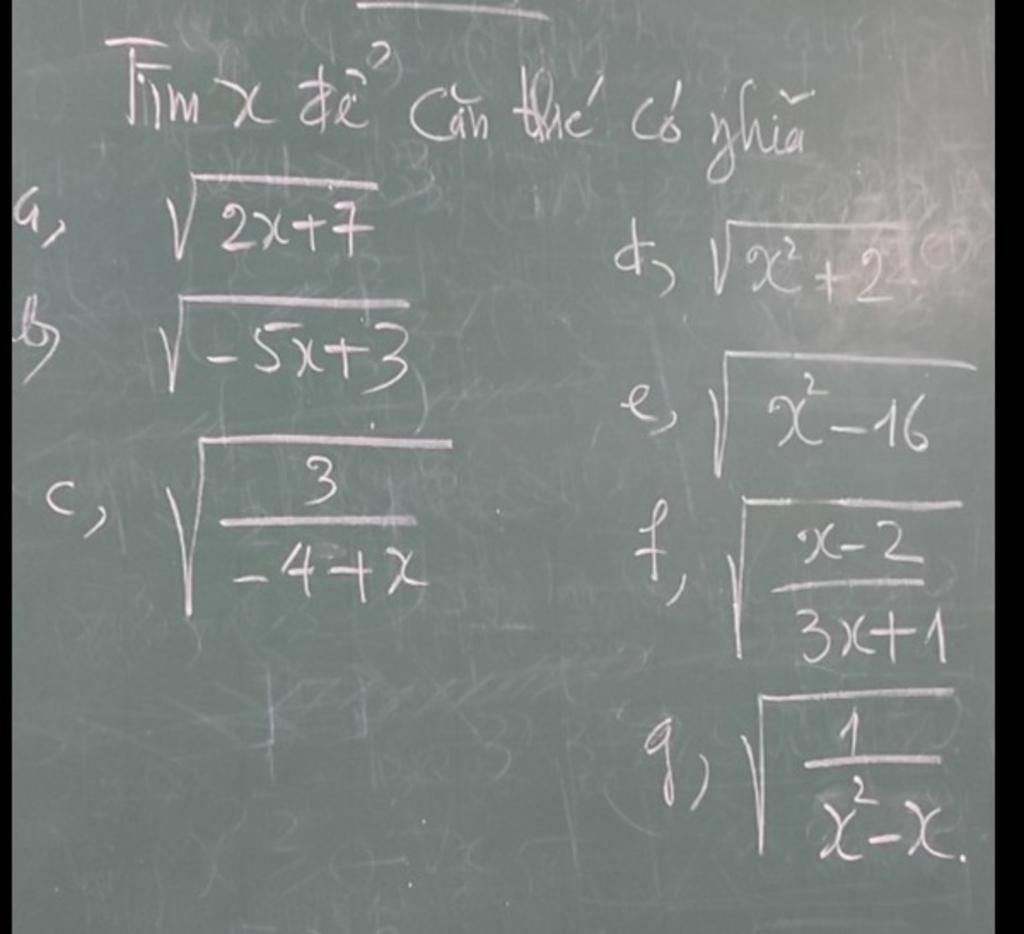 Tìm x để căn thứ có nghĩa
a, √(2x+7)
b) √(-5x+3)
c, √(3/(-4+x))
d, √(x²+2)
e, √(x²-16)
f, √((x-2)/(3x+1))
g) √(1/(x²-x)).